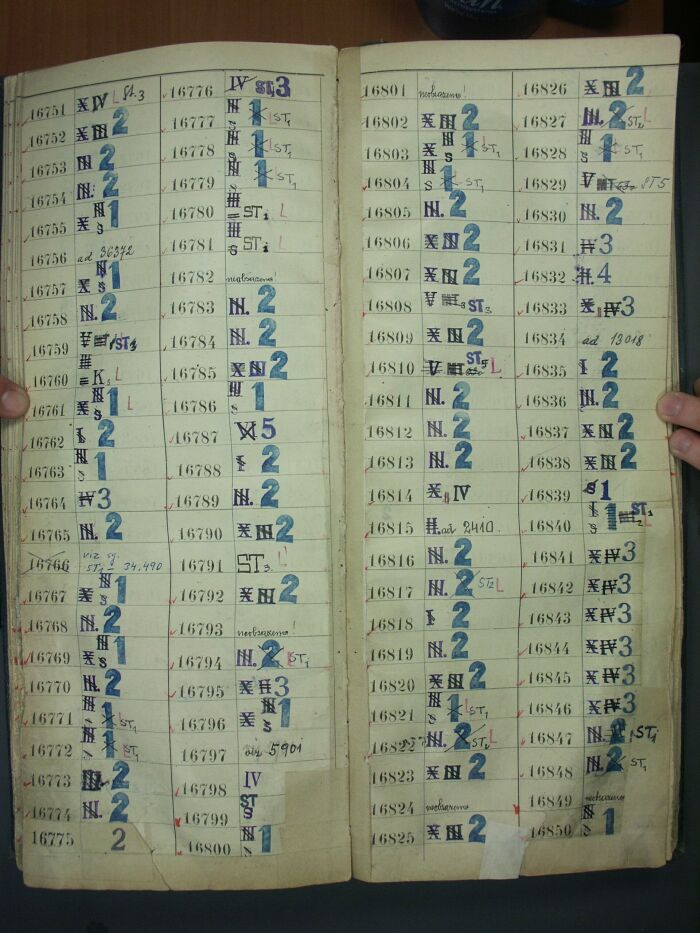 16751 X IV L St. 3
16752 X III 2
16753 III 2
16754 III. 2
16755 X III S 1
16756 ad 36372
16757 X III S 1
16758 III. 2
16759 V ST3
16760 K L
16761 X III S 1 L
16762 I 2
16763 III S 1
16764 IV 3
16765 III. 2
16766 viz sg. ST 34.490
16767 X III S 1
16768 III. 2
16769 X III S 1
16770 III. 2
16771 III S 1 L ST1
16772 III S 1 L ST1
16773 III. 2
16774 III. 2
16775 2
16776 IV ST.3
16777 III S 1 ST1
16778 III S 1 ST1
16779 III S 1 ST1
16780 III ST L
16781 III S ST L
16782 neobsazeno!
16783 III. 2
16784 III. 2
16785 X III 2
16786 III S 1
16787 5
16788 I 2
16789 III. 2
16790 X III 2
16791 ST3. L
16792 X III 2
16793 neobsazeno!
16794 III. 2 ST1
16795 X II 3
16796 X III S 1
16797 viz 5901
16798 IV
16799 ST S
16800 III S 1
16801 neobsazeno!
16802 X III 2
16803 X III S 1 L ST1
16804 III S 1 L ST1
16805 III. 2
16806 X III 2
16807 X III 2
16808 V ST3
16809 X III 2
16810 V ST5 L
16811 III. 2
16812 III. 2
16813 III. 2
16814 X II IV
16815 II. ad 2410.
16816 III. 2
16817 III. 2 ST2 L
16818 I 2
16819 III. 2
16820 X III 2
16821 III S 1 L ST1
16822 III. 2 ST2 L
16823 X III 2
16824 neobsazeno
16825 X III 2
16826 X III 2
16827 III. 2 ST2 L
16828 III S 1 ST1
16829 V ST5
16830 III. 2
16831 IV 3
16832 II. 4
16833 X II IV 3
16834 ad 13018
16835 I 2
16836 III. 2
16837 X III 2
16838 X III 2
16839 S 1
16840 I S 1 ST1
16841 X IV 3
16842 X IV 3
16843 X IV 3
16844 X IV 3
16845 X IV 3
16846 X IV 3
16847 III. ST1
16848 III. 2 ST1
16849 neobsazeno
16850 III S 1